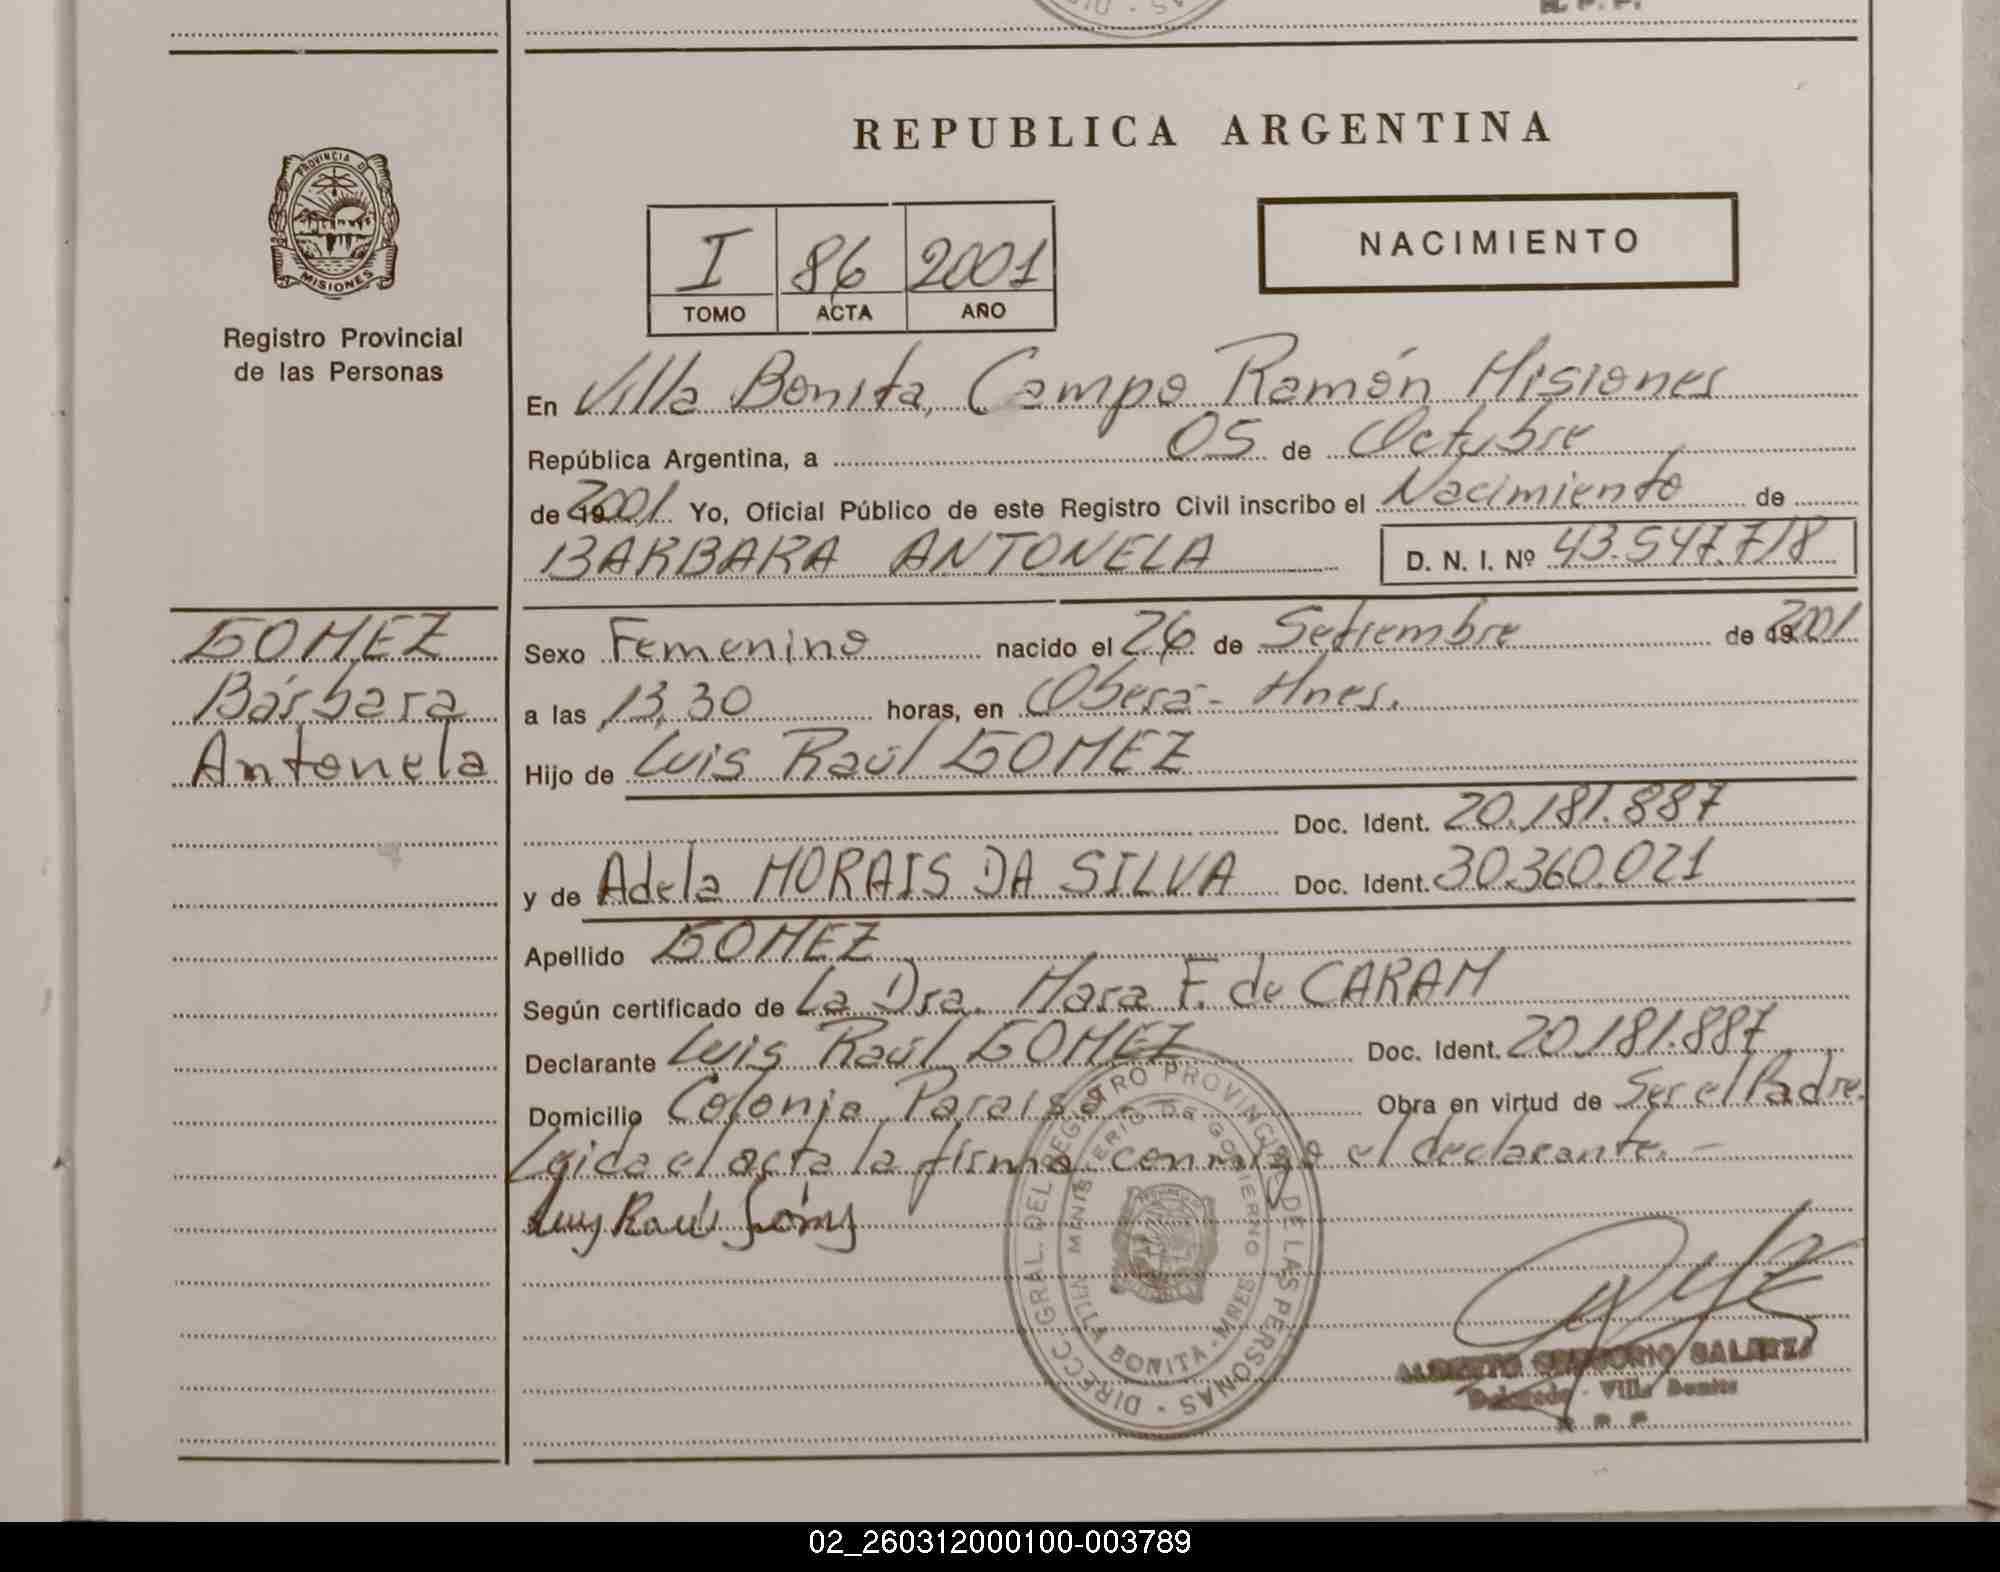 REPUBLICA ARGENTINA
PROVINCIA DE
MISIONES
Registro Provincial
de las Personas
I 86 2001
TOMO ACTA AÑO
NACIMIENTO
En Villa Bonita, Campo Ramón Misiones
República Argentina, a 05 de Octubre
de 192001 Yo, Oficial Público de este Registro Civil inscribo el Nacimiento de
BARBARA ANTONELA D. N. I. Nº 43.547.718
GOMEZ
Bárbara
Antonela
Sexo Femenino nacido el 26 de Setiembre de 192001
a las 13,30 horas, en Oberá - Mnes.
Hijo de Luis Raúl GOMEZ
Doc. Ident. 20.181.887
y de Adela MORAIS DA SILVA Doc. Ident. 30.360.021
Apellido GOMEZ
Según certificado de La Dra. Mara F. de CARAM
Declarante Luis Raúl GOMEZ Doc. Ident. 20.181.887
Domicilio Colonia Paraiso Obra en virtud de Ser el Padre.
Leida el acta la firma conmigo el declarante. -
Luis Raúl Gómez
DIRECC. GRAL. DEL REGISTRO PROVINCIAL DE LAS PERSONAS
MINISTERIO DE GOBIERNO
VILLA BONITA - MNES
ALBERTO GREGORIO GALARZA
Delegado - Villa Bonita
02_260312000100-003789